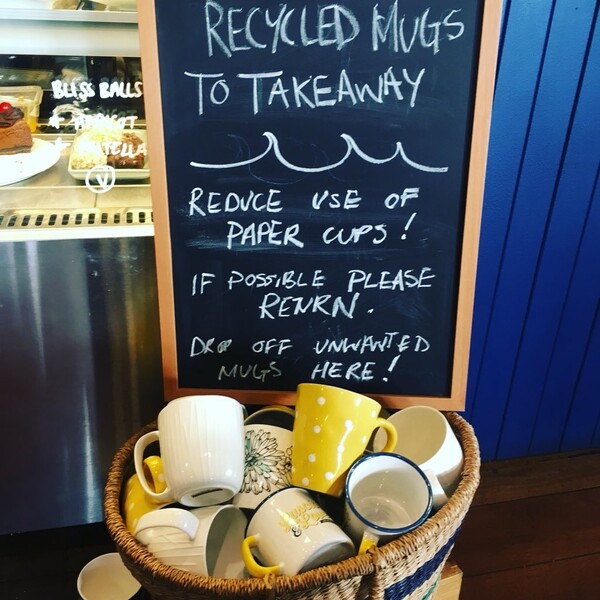 RECYCLED MUGS
TO TAKEAWAY
REDUCE USE OF
PAPER CUPS!
IF POSSIBLE PLEASE
RENRN.
DROP OFF UNWANTED
MUGS HERE!
BLISS BALLS
+ APRICOT
+
V